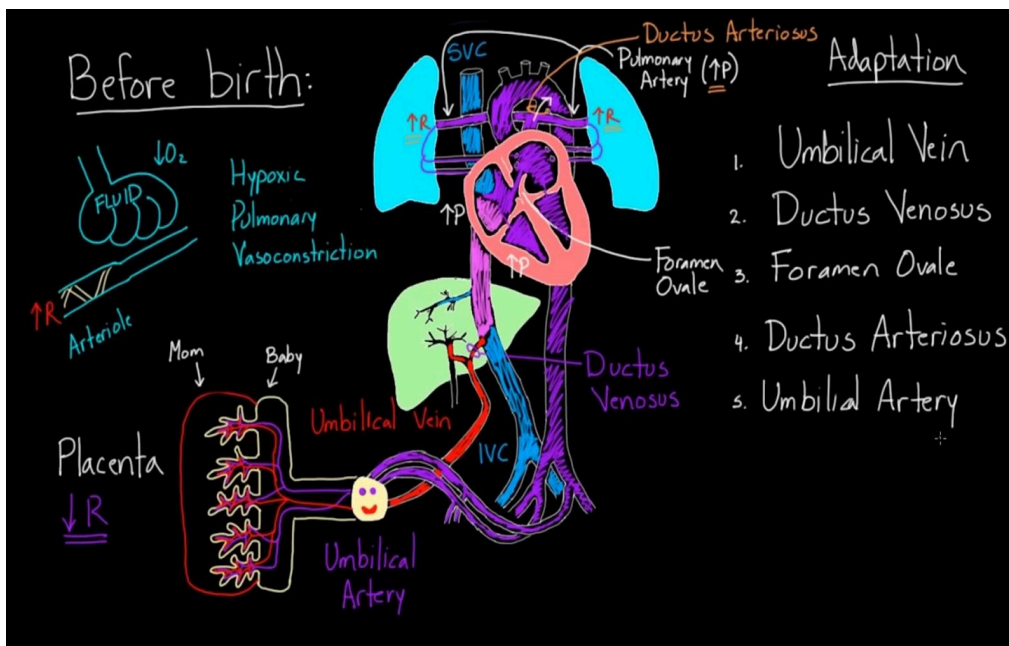 Before birth:
↓O2
FLUID
Hypoxic
Pulmonary
Vasoconstriction
↑R
Arteriole
Mom
Baby
Placenta
↓R
Umbilical Vein
Umbilical
Artery
SVC
Ductus Arteriosus
Pulmonary
Artery (↑P)
↑R
↑R
↑P
↑P
Foramen
Ovale
Ductus
Venosus
IVC
Adaptation
1. Umbilical Vein
2. Ductus Venosus
3. Foramen Ovale
4. Ductus Arteriosus
5. Umbilial Artery